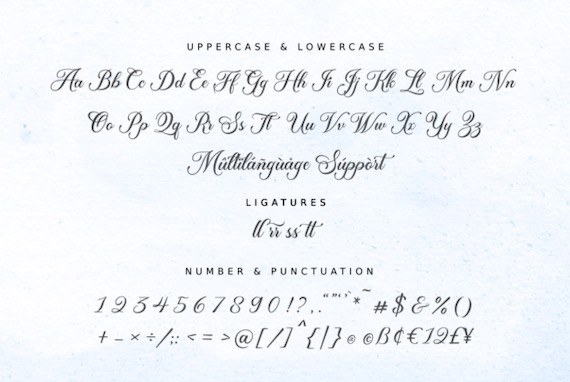 UPPERCASE & LOWERCASE
Aa Bb Cc Dd Ee Ff Gg Hh Ii Jj Kk Ll Mm Nn
Oo Pp Qq Rr Ss Tt Uu Vv Ww Xx Yy Zz
Múltíláñgùàge Súppòrt
LIGATURES
ll rr ss tt
NUMBER & PUNCTUATION
1 2 3 4 5 6 7 8 9 0 ! ? , . “ ” ‘ ’ ` * ~ # $ & % ( )
+ – × ÷ / ; : < = > @ [ / ] ^ { | } ® © ß ¢ € 1 2 £ ¥